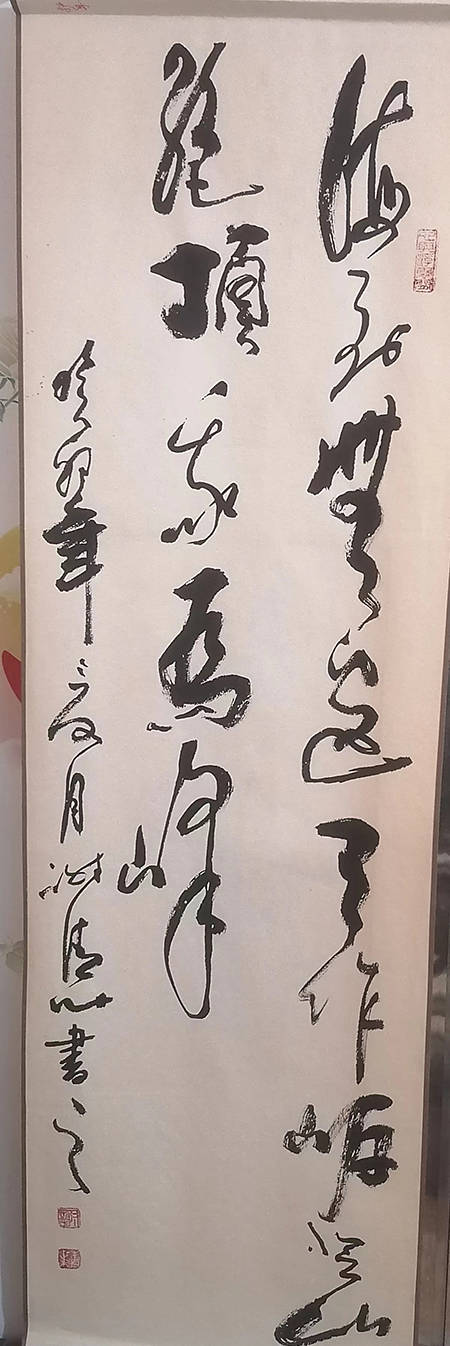 海到無邊天作岸登山
絕頂我為峰
癸卯年夏月清心書之